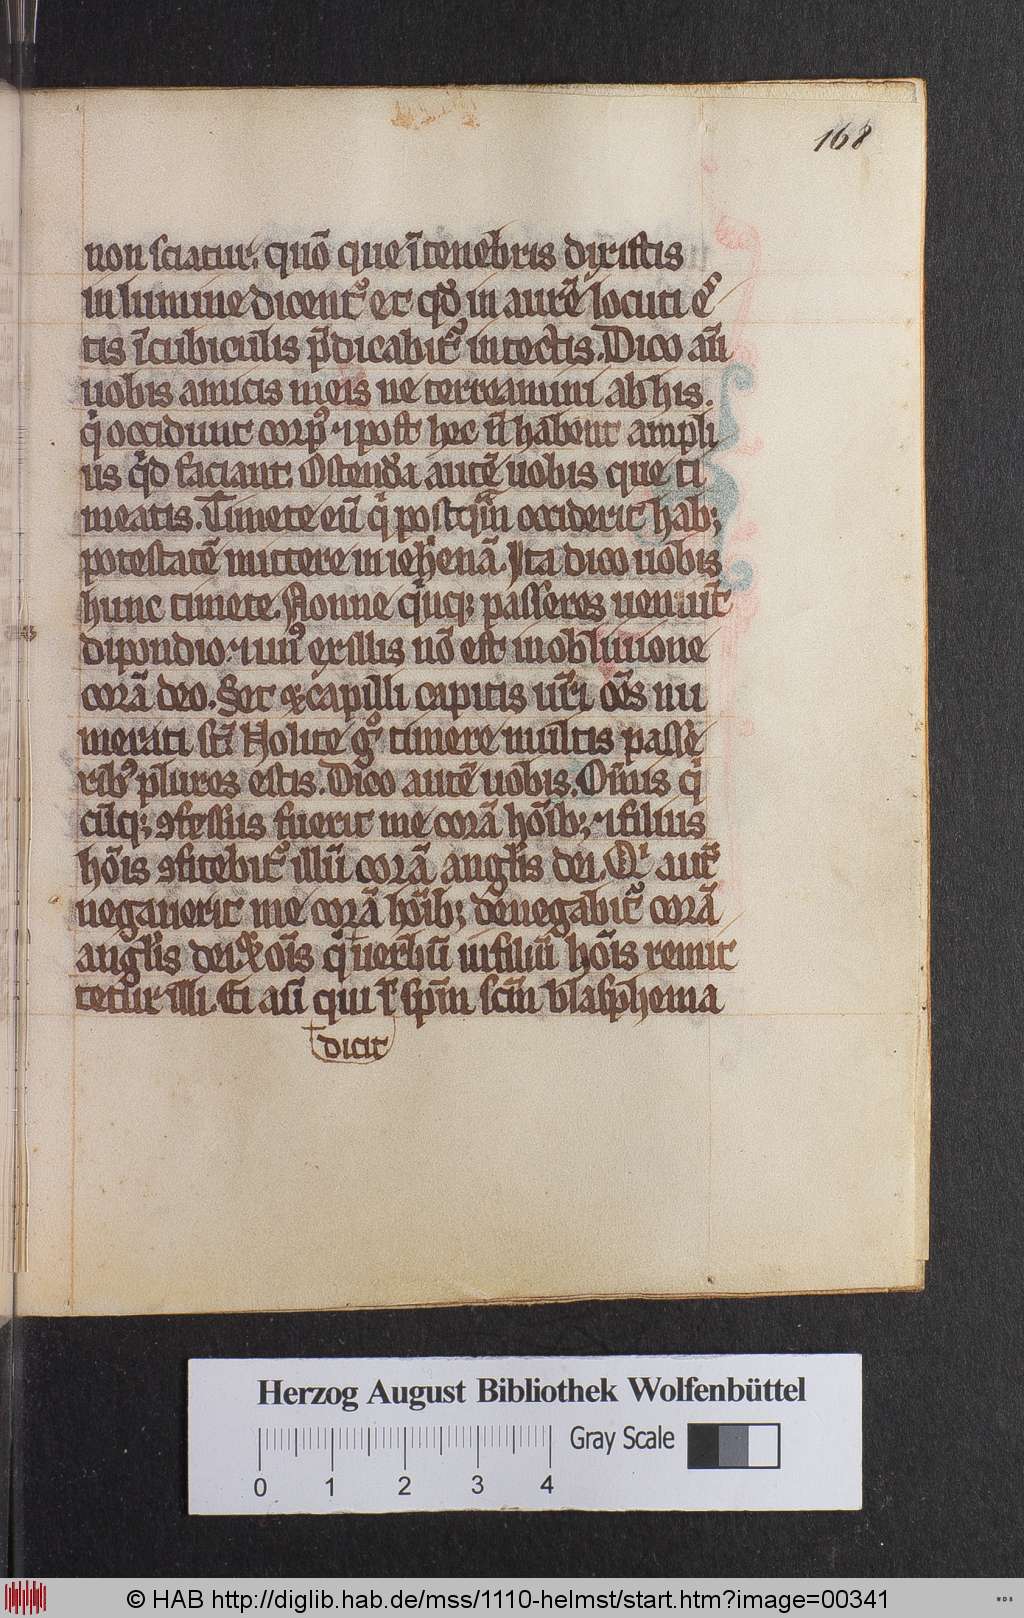 168
non sciatur. quō que ītenebris dixistis
in lumine dicentᷣ et qd̄ in aurē locuti es
tis īcubiculis p̄dicabitᷣ in tectis. Dico aūt
uobis amicis meis ne terreamini ab his.
qͥ occidunt corpꝰ ⁊ post hec n̄ habent ampli
us qͥd faciant. Ostendā autē uobis que ti
meatis. Timete eū qͥ postqͣm occiderit hab;
potestatē mittere in iehenā. Ita dico uobis
hunc timete. Nonne qͥnq; passeres ueneūt
dipondio. ⁊ unꝰ ex illis nō est in obliuione
corā deo. Set ⁊ capilli capitis ur̄i om̄s nu
merati st̄ Nolite gͦ timere multis passe
ribꝰ plures estis. Dico autē uobis. Om̄is qͥ
cūq; ꝯfessus fuerit me corā hōib; ⁊ filius
hōis ꝯfitebitᷣ illū corā angl̄is dei. Qͥ autē
negauerit me corā hōib; denegabitᷣ corā
angl̄is dei. Et oīs qͥ uerbū in filiū hōis remit
tetur illi. Ei aūt qui ī spm̄ scm̄ blasphema
dicit
Herzog August Bibliothek Wolfenbüttel
Gray Scale
0 1 2 3 4
© HAB http://diglib.hab.de/mss/1110-helmst/start.htm?image=00341